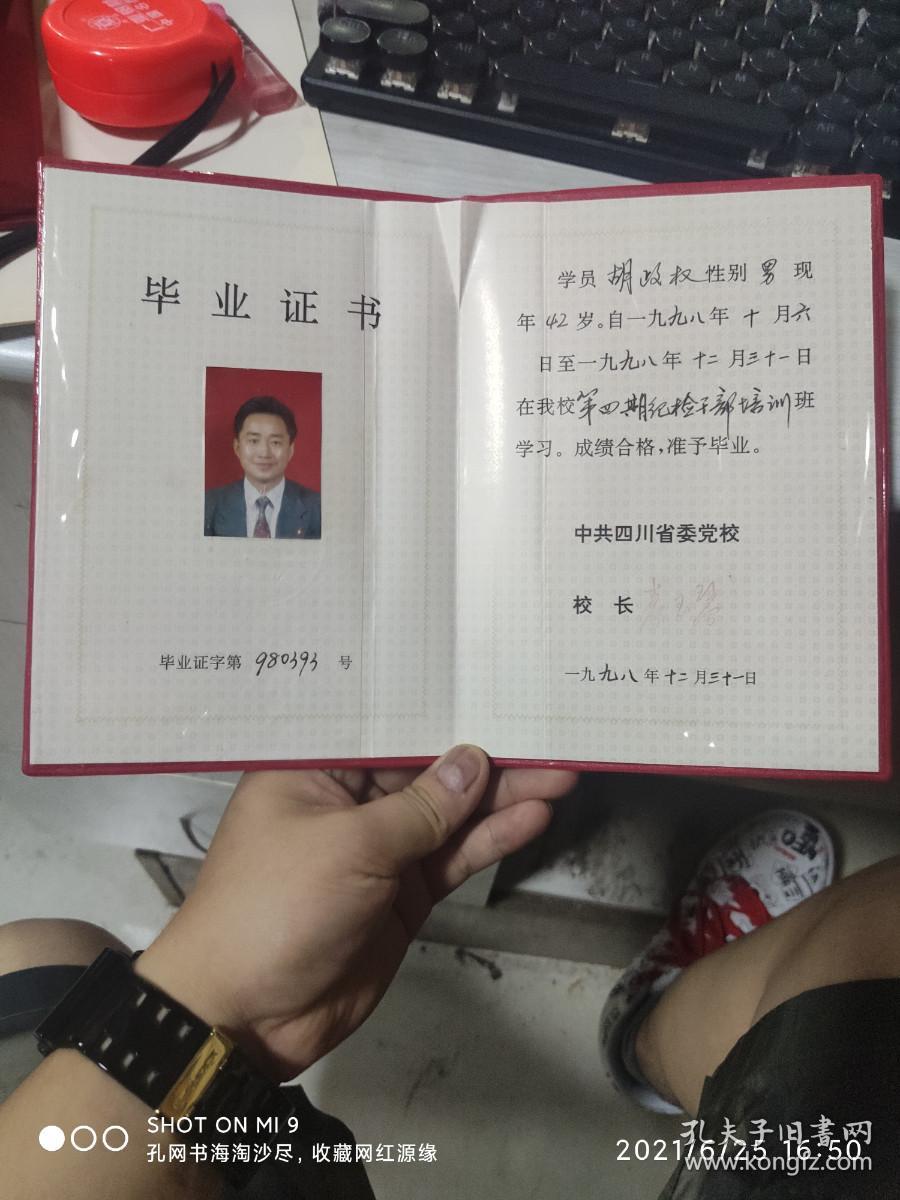 毕业证书
毕业证字第 980393 号
学员 胡政权 性别 男 现
年 42 岁。自一九九八年 十 月六
日至一九九八年 十二 月三十一日
在我校第四期纪检干部培训班
学习。成绩合格,准予毕业。
中共四川省委党校
校 长
一九九八年十二月三十一日
SHOT ON MI 9
孔网书海淘沙尽,收藏网红源缘
2021/6/25 16:50
孔夫子旧書网
www.kongfz.com